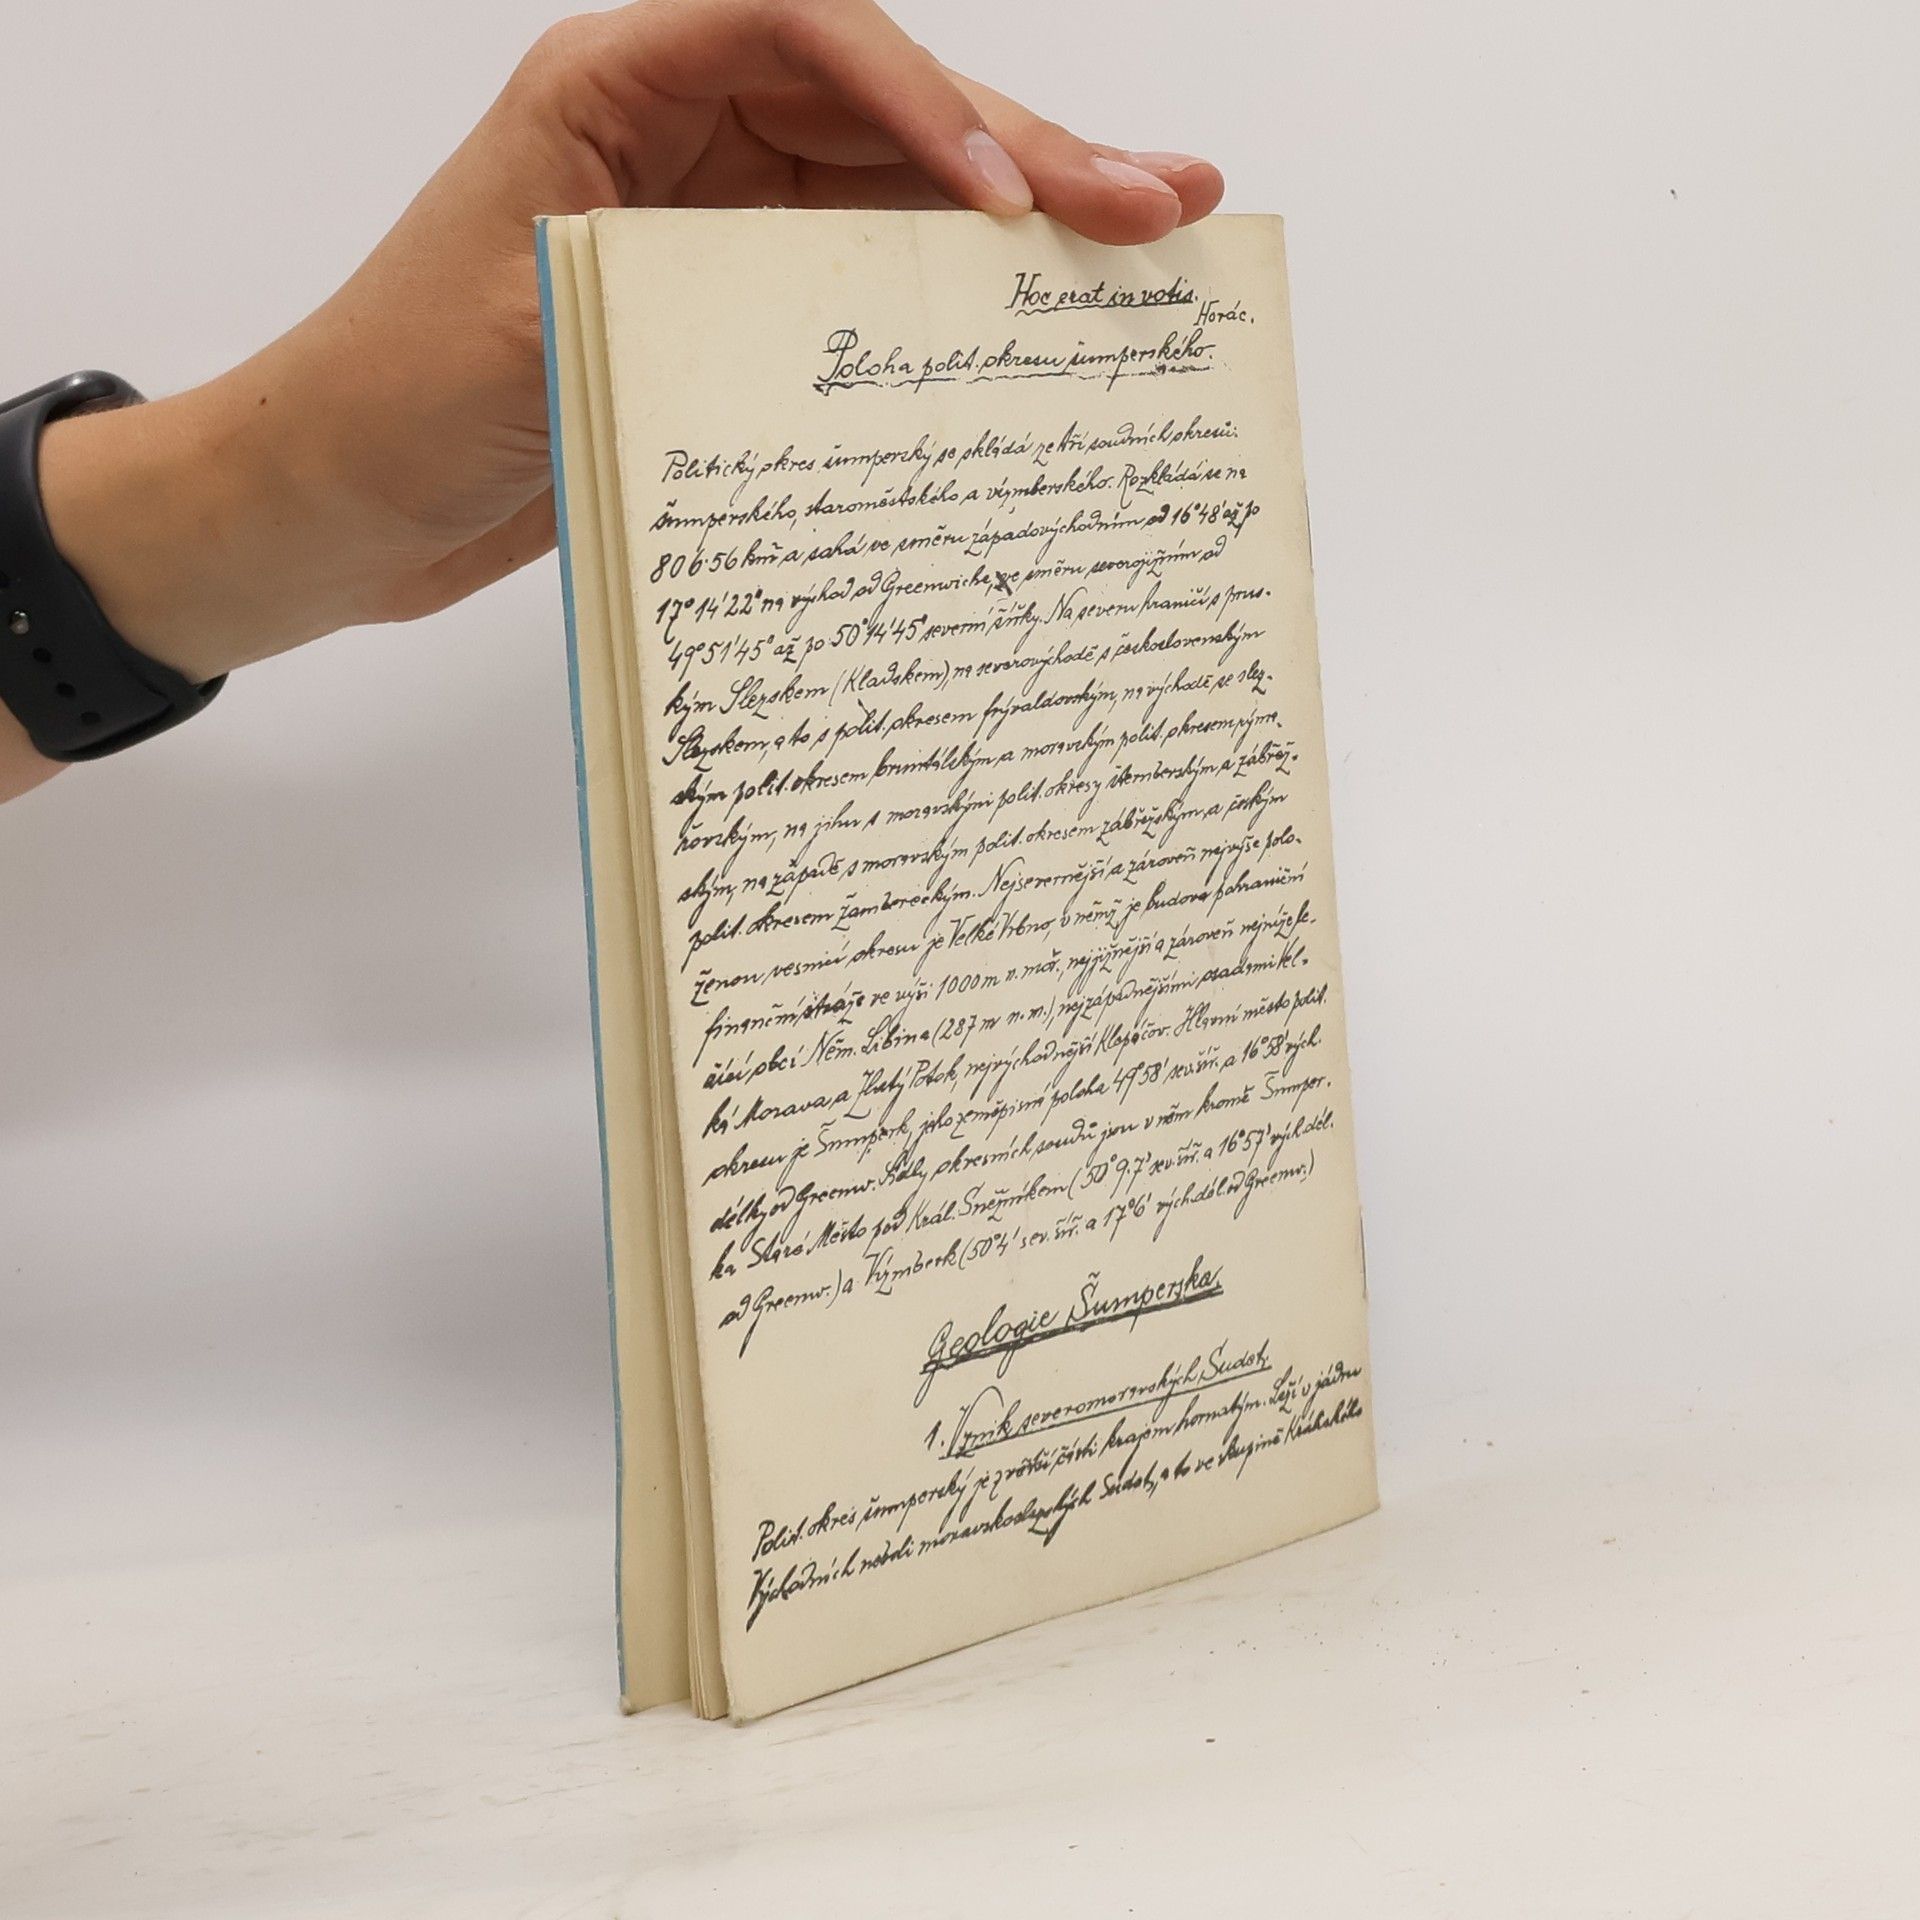 Hoc erat in votis.
Horác.
Poloha polit. okresu šumperského.
Politický okres šumperský se skládá ze tří soudních okresů:
šumperského, staroměstského a vízmberského. Rozkládá se na
806·56 km² a sahá ve směru západovýchodním od 16°48' až po
17°14'22" na východ od Greenwiche, ve směru severojižním od
49°51'45" až po 50°14'45" severní šířky. Na severu hraničí s prus-
kým Slezskem (Kladskem), na severovýchodě s československým
Slezskem, a to s polit. okresem frývaldovským, na východě se slez-
ským polit. okresem bruntálským a moravským polit. okresem rýma-
řovským, na jihu s moravskými polit. okresy šternberským a zábřež-
ským, na západě s moravským polit. okresem zábřežským a českým
polit. okresem žambereckým. Nejsevernější a zároveň nejvýše polo-
ženou vesnicí okresu je Velké Vrbno, v němž je budova pohraniční
finanční stráže ve výši 1000 m n. moř., nejjižnější a zároveň nejníže le-
žící obcí Něm. Libina (287 m n. m.), nejzápadnějšími osadami Vel-
ká Morava a Žlutý Potok, nejvýchodnější Klepáčov. Hlavní město polit.
okresu je Šumperk, jeho zeměpisná poloha 49°58' sev. šíř. a 16°58' vých.
délky od Greenw. Sídly okresních soudů jsou v něm kromě Šumper-
ka Staré Město pod Král. Sněžníkem (50°9·7' sev. šíř. a 16°57' vých. dél.
od Greenw.) a Vízmberk (50°4' sev. šíř. a 17°6' vých. dél. od Greenw.)
Geologie Šumperska.
1. Vznik severomoravských Sudet.
Polit. okres šumperský je z větší části krajem hornatým. Leží v jádru
Východních neboli moravskoslezských Sudet, a to ve skupině Králického